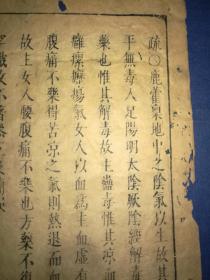 疏○鹿藿稟地中之陰氣以生故其
平無毒入足陽明太陰厥陰經解
藥也惟其解毒故主蠱毒惟其涼
癰瘰癧瘍氣女人以血為主血虛有
腹痛不樂得苦涼之氣則熱退而血
故主女人腰腹痛不樂也方藥不復